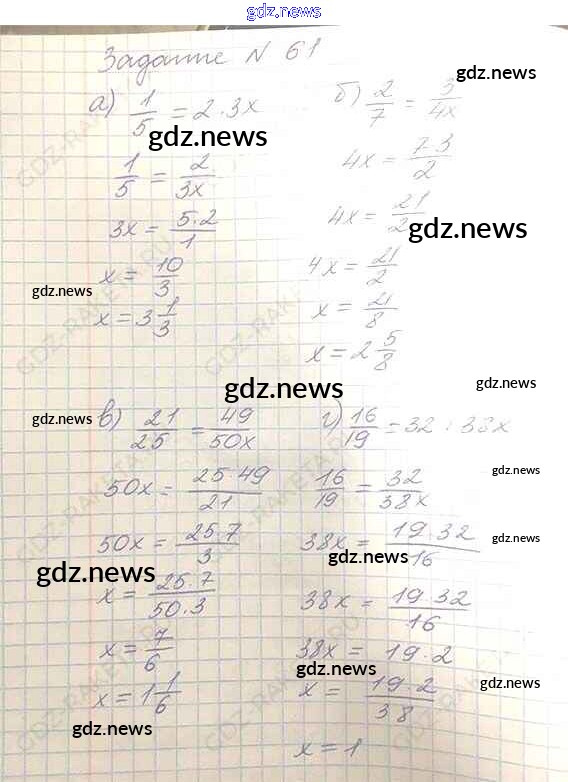 gdz.news
Задание N 61
gdz.news
а) 1/5 = 2 : 3x
gdz.news
1/5 = 2/3x
3x = 5·2/1
gdz.news
x = 10/3
x = 3 1/3
б) 2/7 = 3/4x
4x = 7·3/2
4x = 21/2
gdz.news
4x = 21/2
x = 21/8
x = 2 5/8
gdz.news
gdz.news
gdz.news
в) 21/25 = 49/50x
50x = 25·49/21
50x = 25·7/3
gdz.news
x = 25·7/50·3
x = 7/6
x = 1 1/6
gdz.news
г) 16/19 = 32 : 38x
gdz.news
16/19 = 32/38x
gdz.news
38x = 19·32/16
gdz.news
38x = 19·32/16
38x = 19·2
gdz.news
x = 19·2/38
gdz.news
x = 1